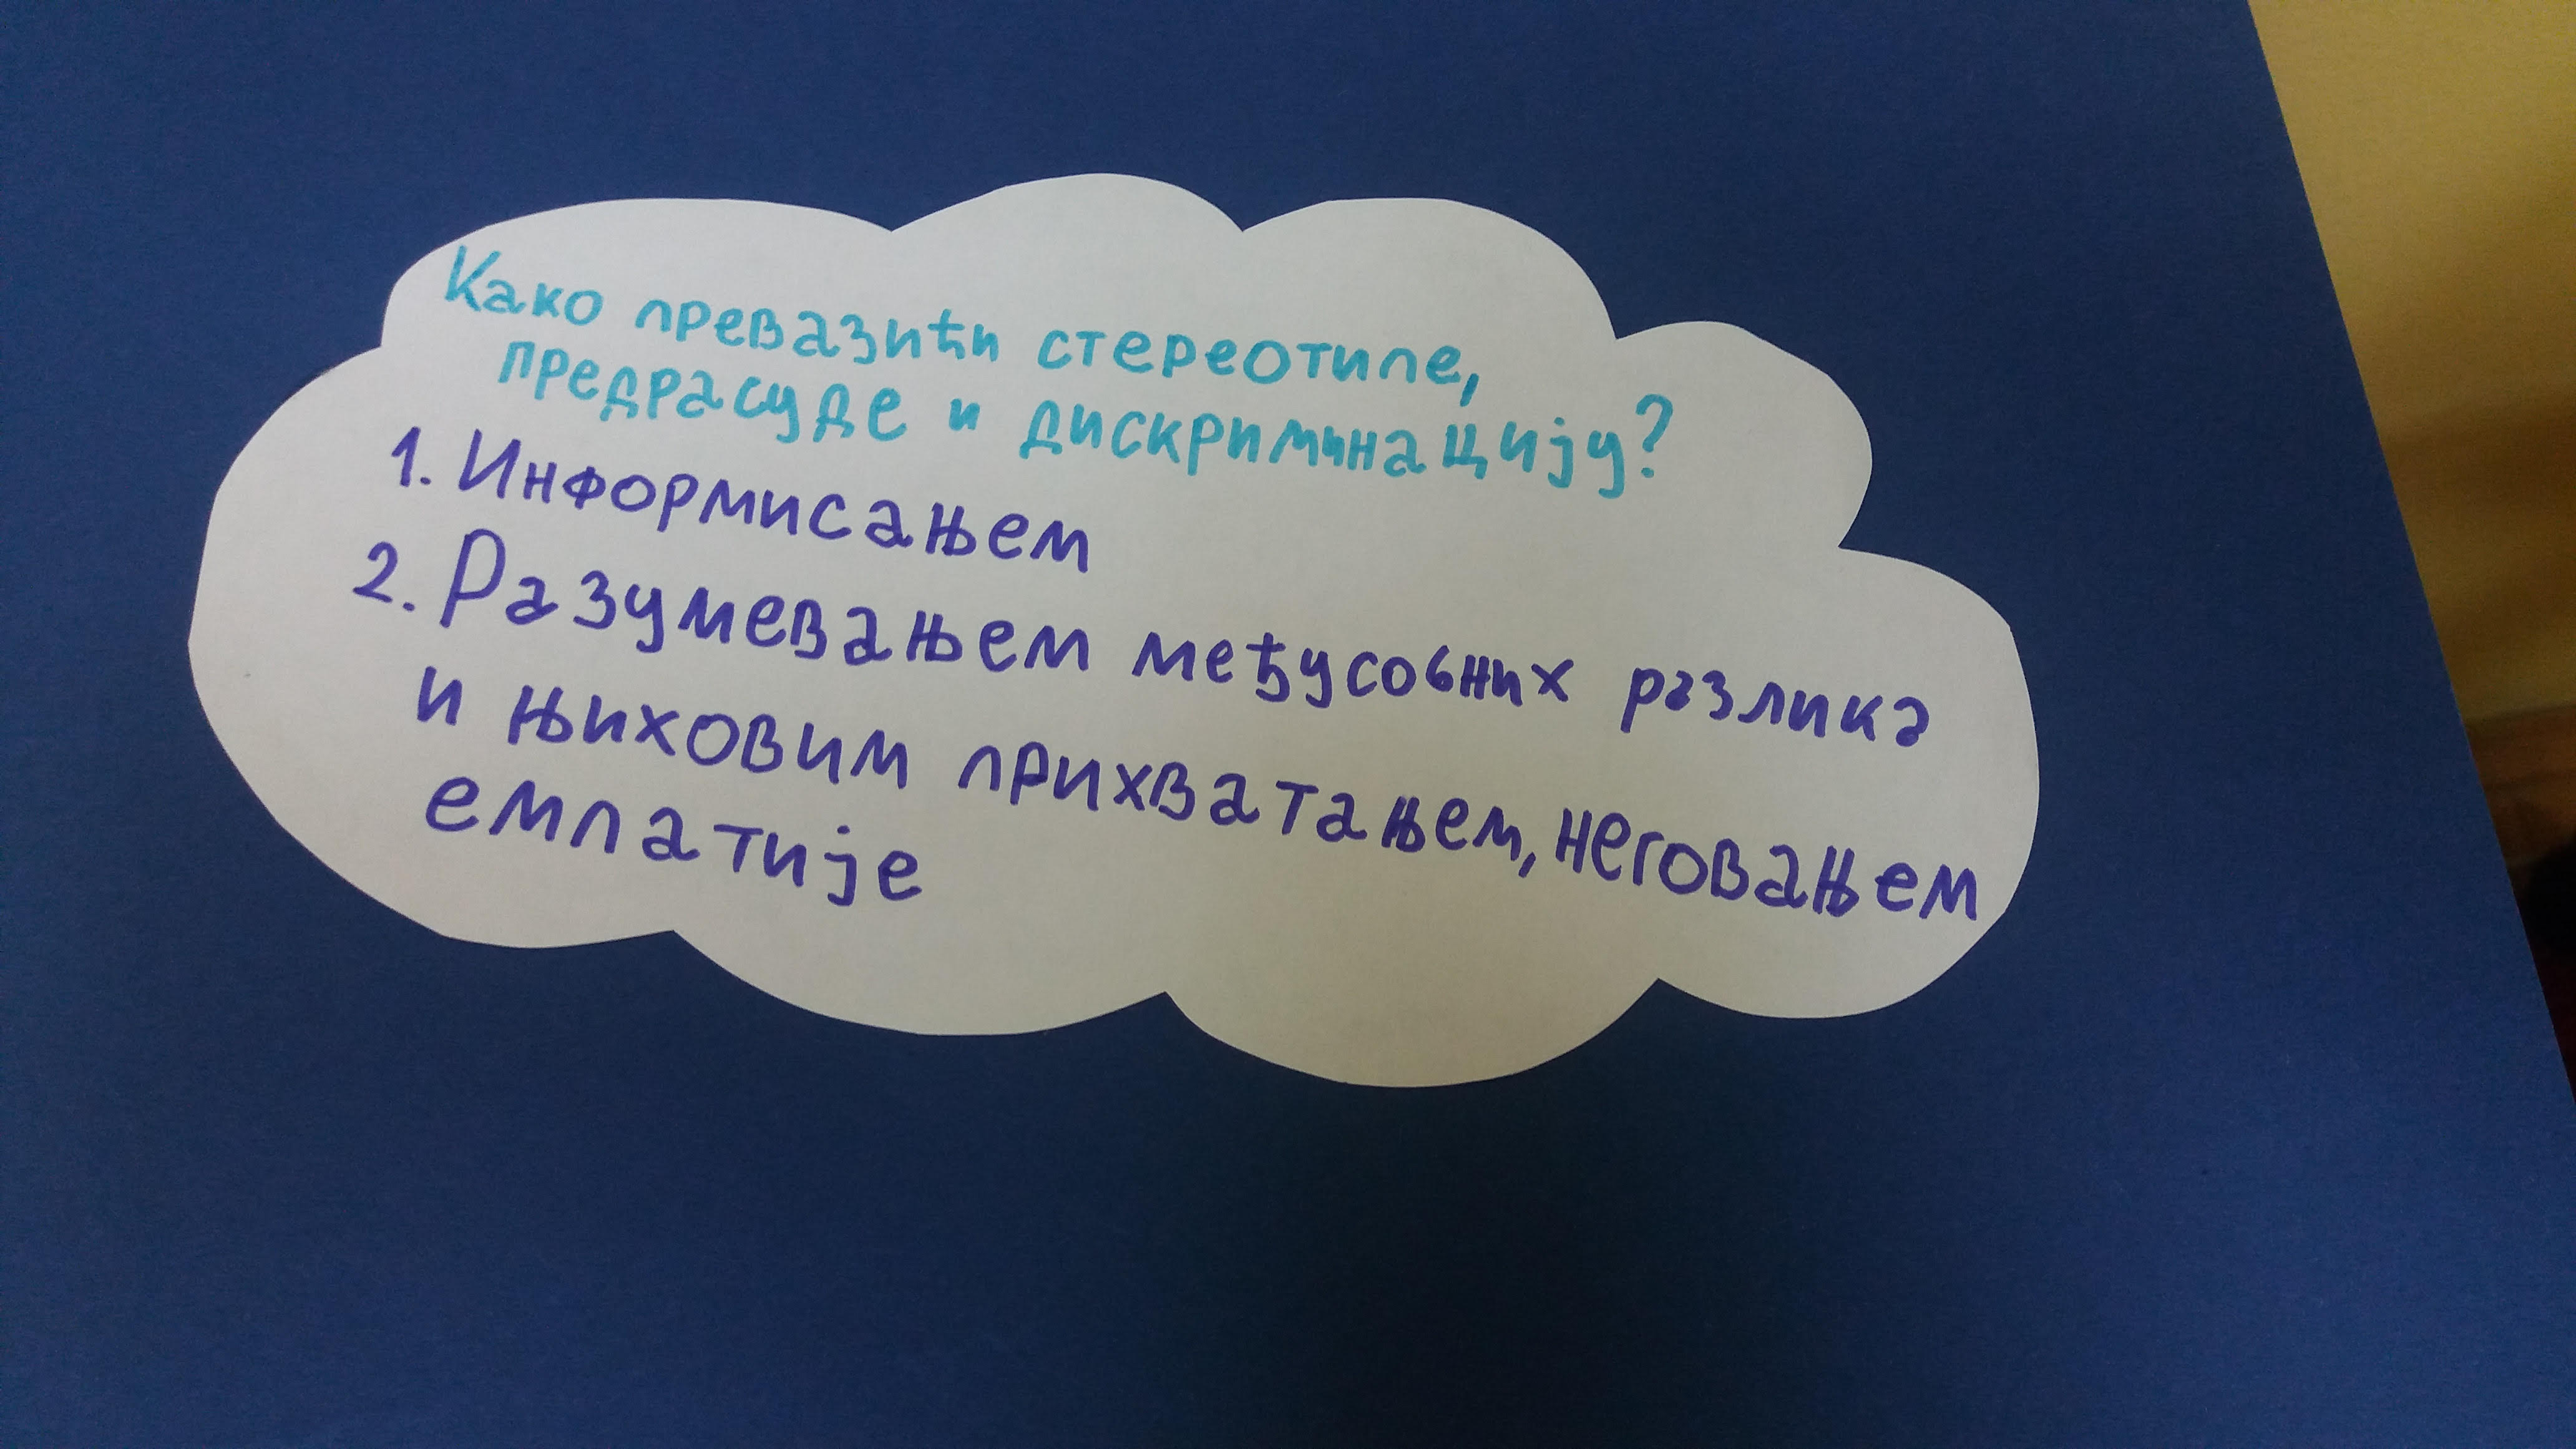 Како превазићи стереотипе,
предрасуде и дискриминацију?
1. Информисањем
2. Разумевањем међусобних разлика
и њиховим прихватањем, неговањем
емпатије